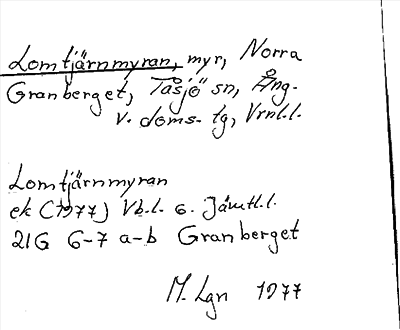 Lomtjärnmyran, myr, Norra
Granberget, Tåsjö sn, Ång-
v. doms. tg, Vrnl.l.
Lomtjärnmyran
ek (1977) Vb.l. o. Jämtl.l.
21G 6-7 a-b Granberget
M. Lgn 1977